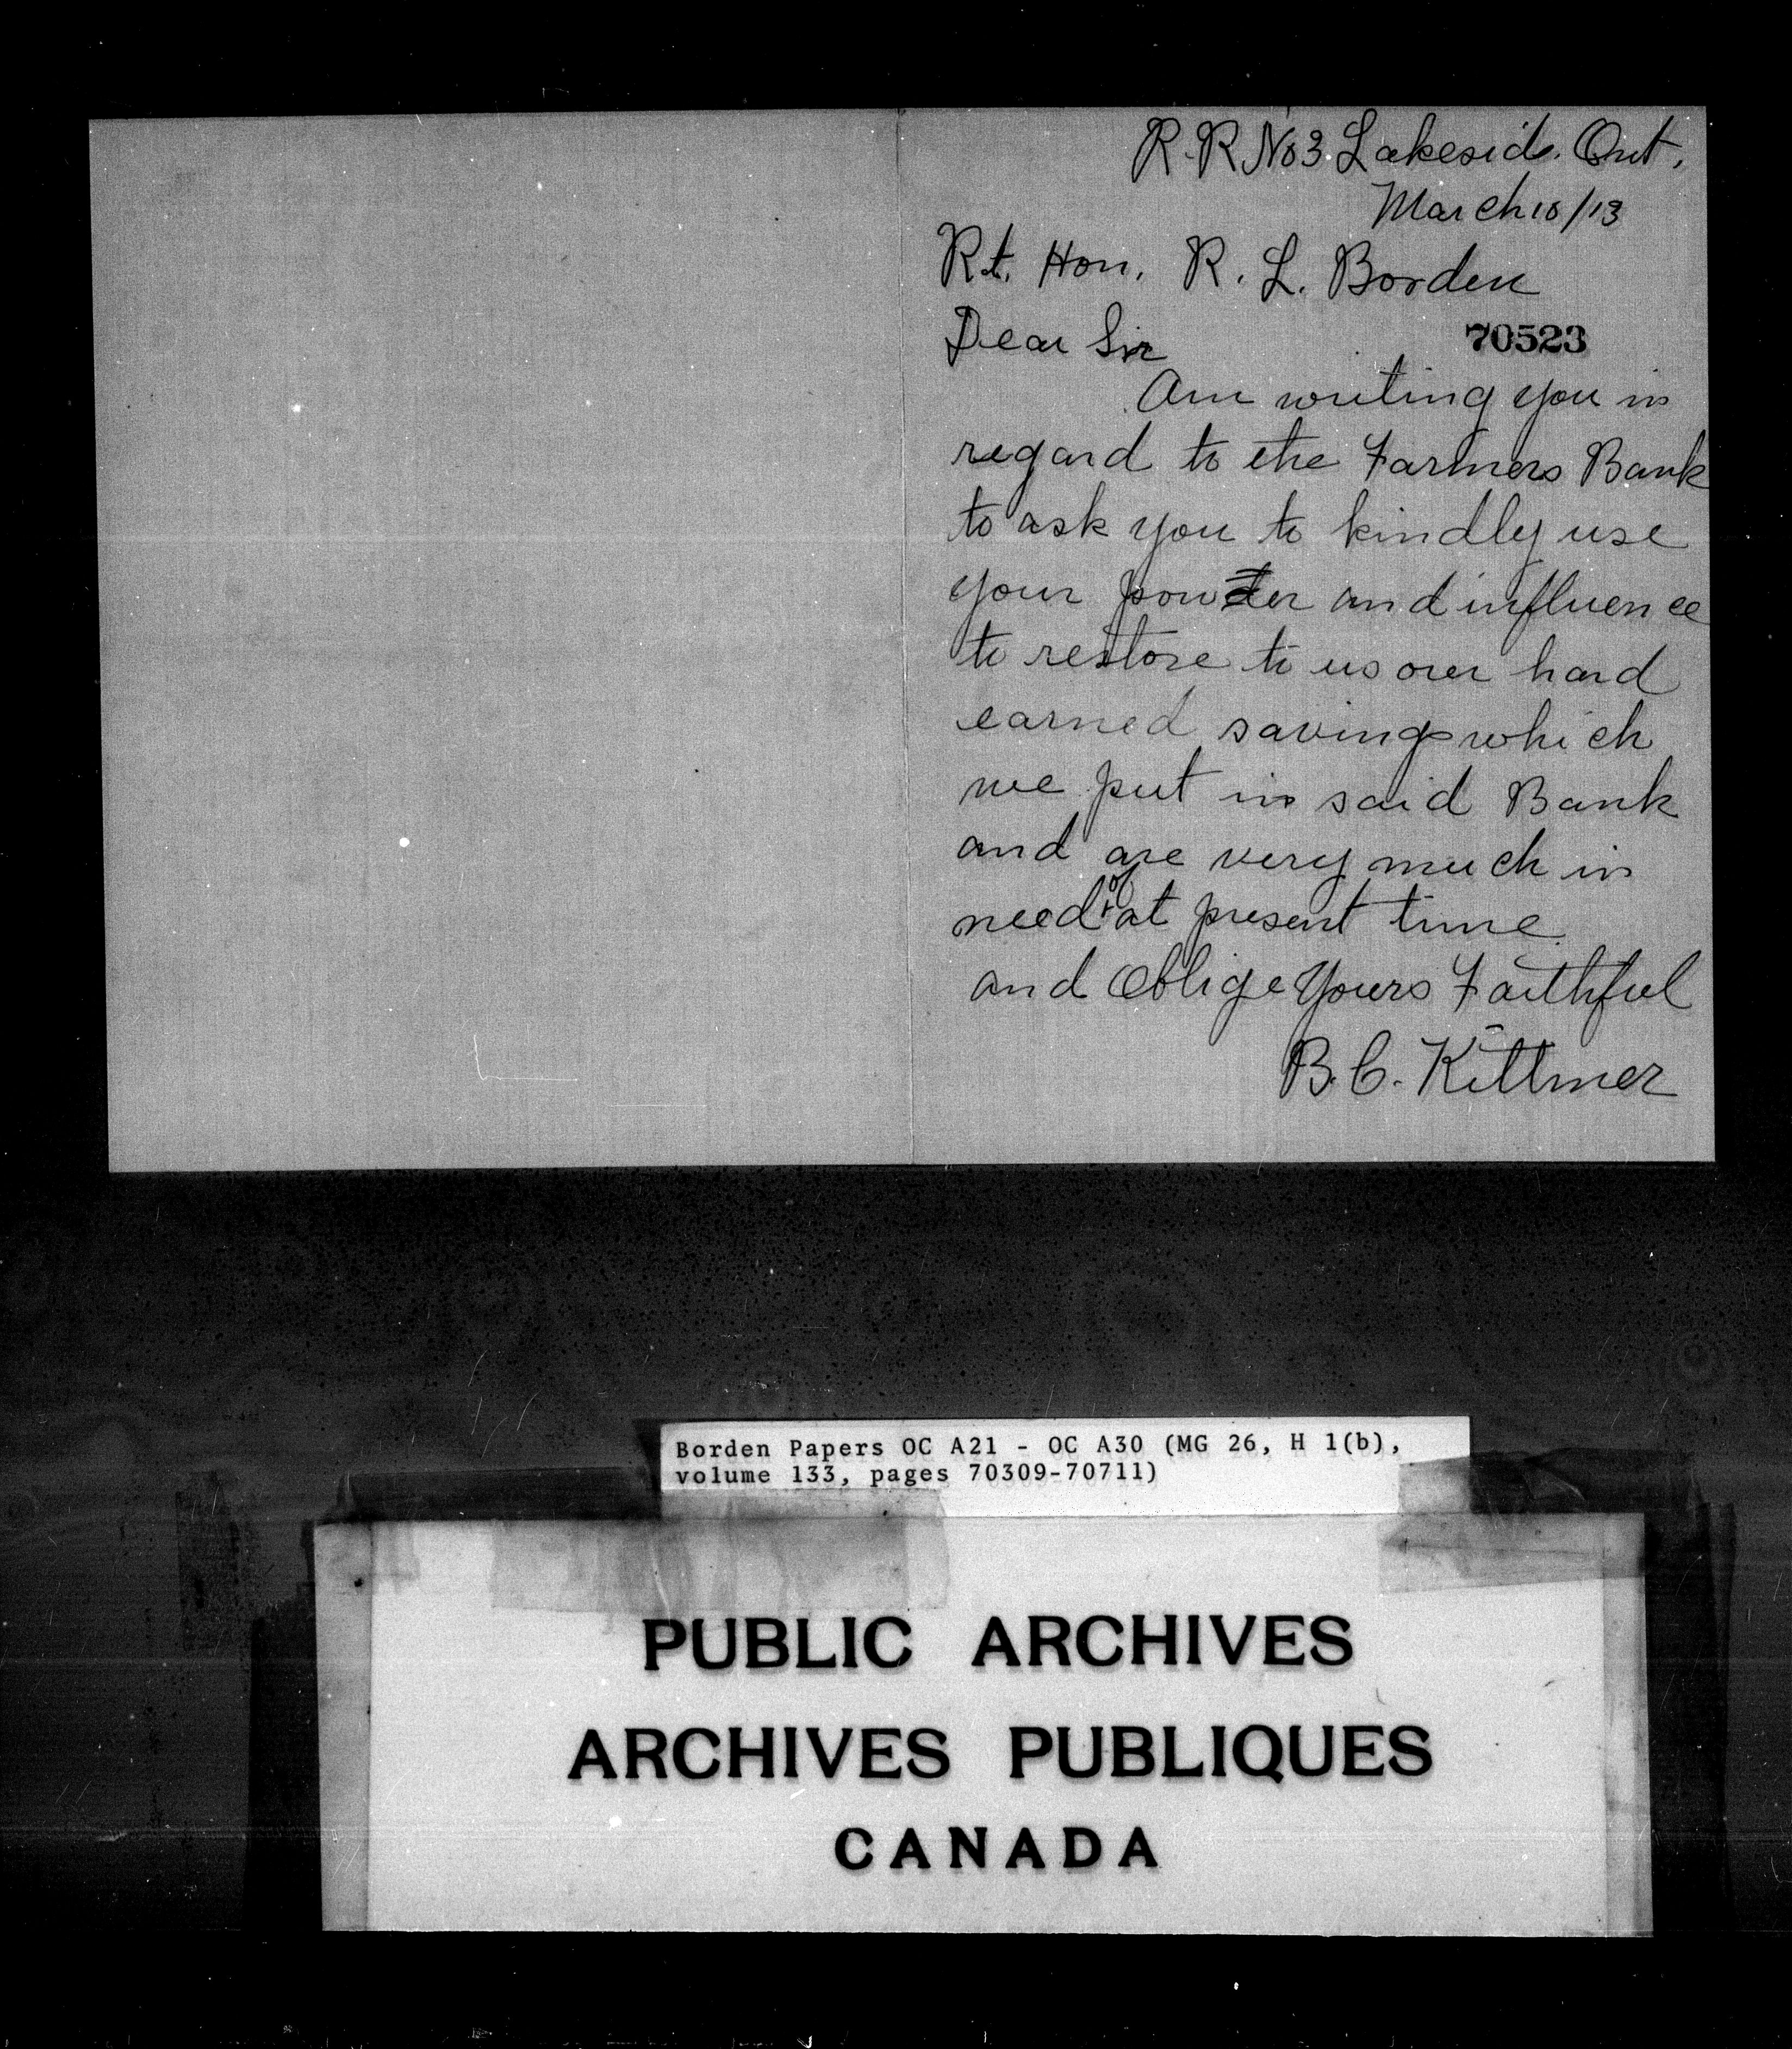 R.R No 3. Lakeside. Ont.
March 10/13
Rt. Hon. R. L. Borden
Dear Sir
70523
Am writing you in
regard to the Farmers Bank
to ask you to kindly use
your power and influence
to restore to us our hard
earned savings which
we put in said Bank
and are very much in
need of at present time
and Oblige Yours Faithful
B. C. Kittmer
Borden Papers OC A21 - OC A30 (MG 26, H 1(b),
volume 133, pages 70309-70711)
PUBLIC ARCHIVES
ARCHIVES PUBLIQUES
CANADA